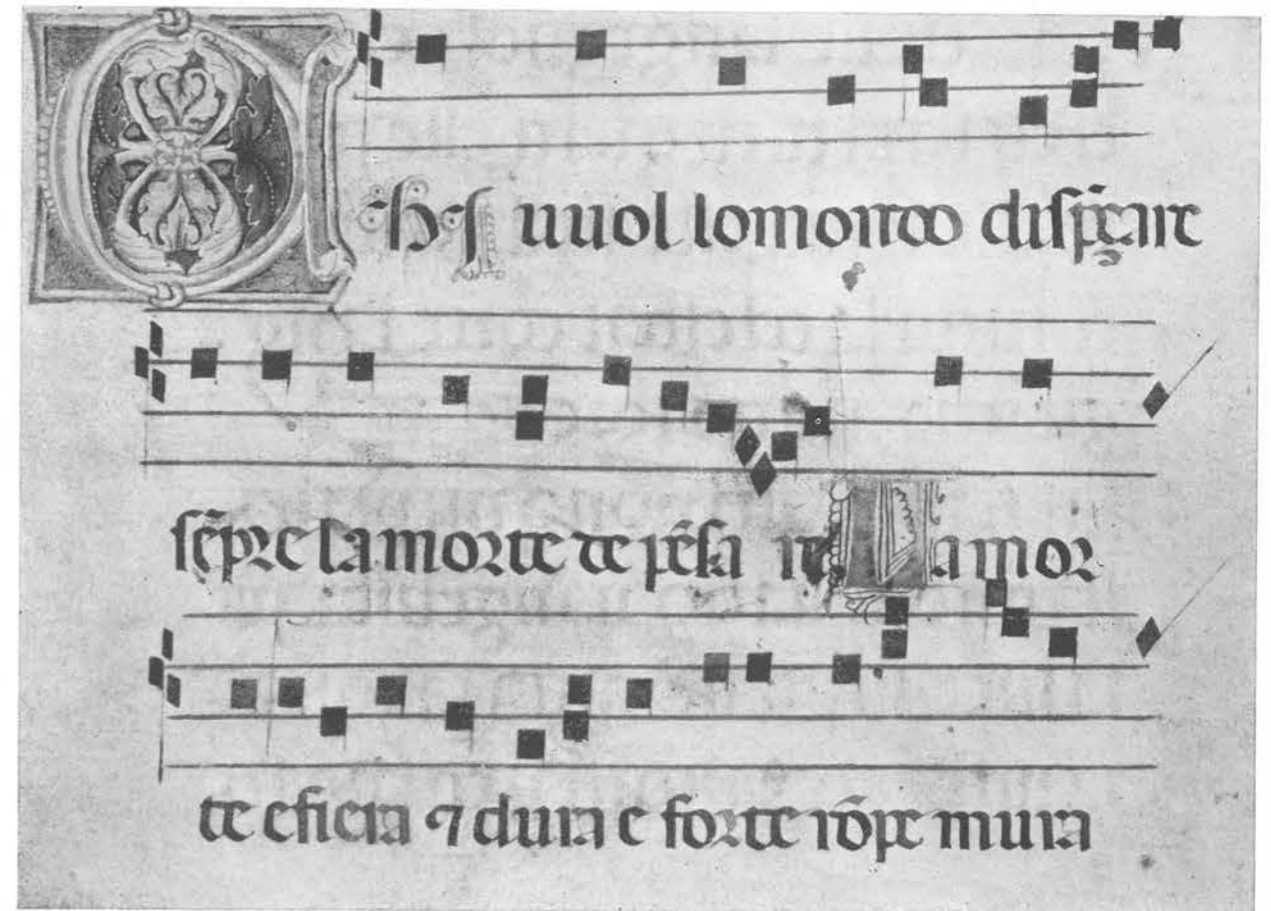 Chi uuol lomondo disp̄çare
sēpre la morte de pēsa re La mor
te e fiera ⁊ dura e forte rōpe mura